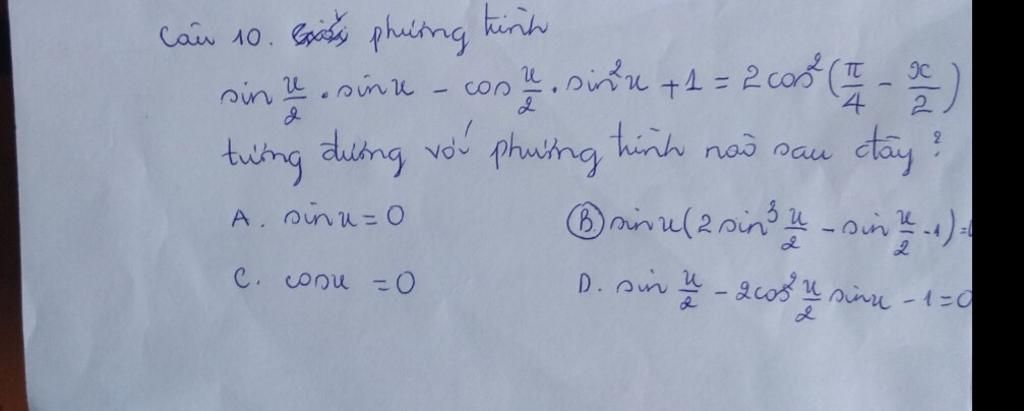 Câu 10. phương trình
sin x/2 . sin x - cos x/2 . sin²x + 1 = 2cos²(π/4 - x/2)
tương đương với phương trình nào sau đây?
A. sin x = 0 B. sin x (2 sin³ x/2 - sin x/2 - 1) =
C. cos x = 0 D. sin x/2 - 2cos² x/2 sin x - 1 = 0